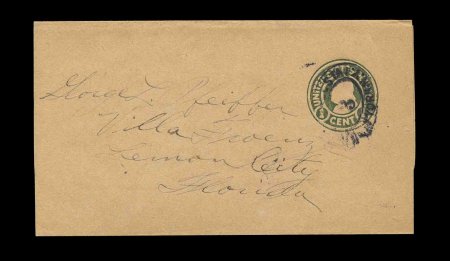 Lloyd L. Pfeiffer
Villa
Lemon City
Florida
UNITED STATES
1 CENT